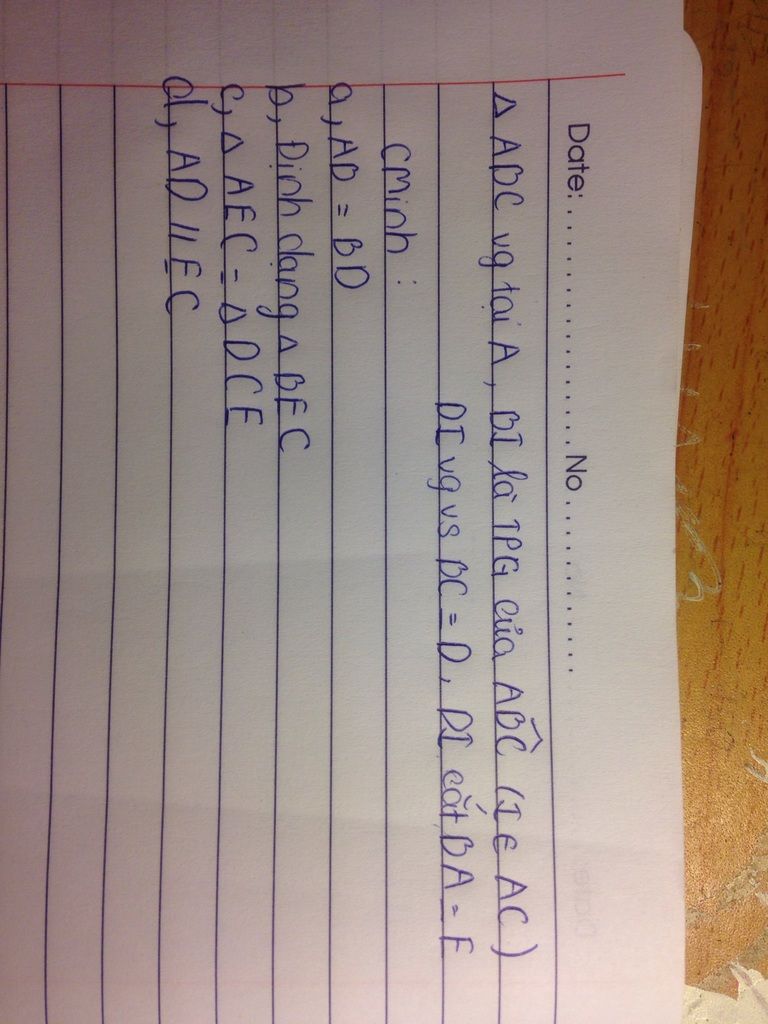 Date: .................. No ............
Δ ABC vg tại A, BI là TPG của ABC (I ∈ AC)
DI vg vs BC = D, DI cắt BA = E
CMinh :
a, AB = BD
b, Định dạng Δ BEC
c, Δ AEC = Δ DCE
d, AD // EC